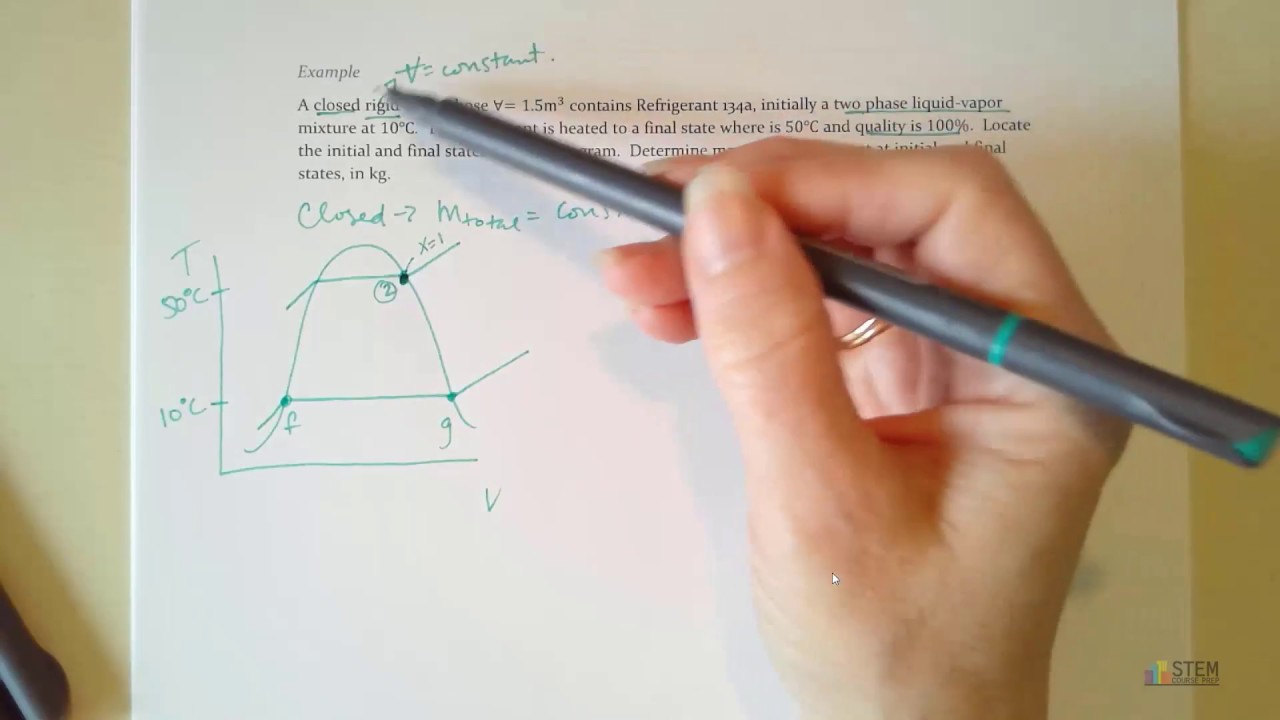 Example
∀= constant.
A closed rigid ∀= 1.5m³ contains Refrigerant 134a, initially a two phase liquid-vapor
mixture at 10°C. is heated to a final state where is 50°C and quality is 100%. Locate
the initial and final Determine
states, in kg.
Closed → Mtotal =
T
x=1
50°C
2
10°C
f
g
V
STEM
COURSE PREP